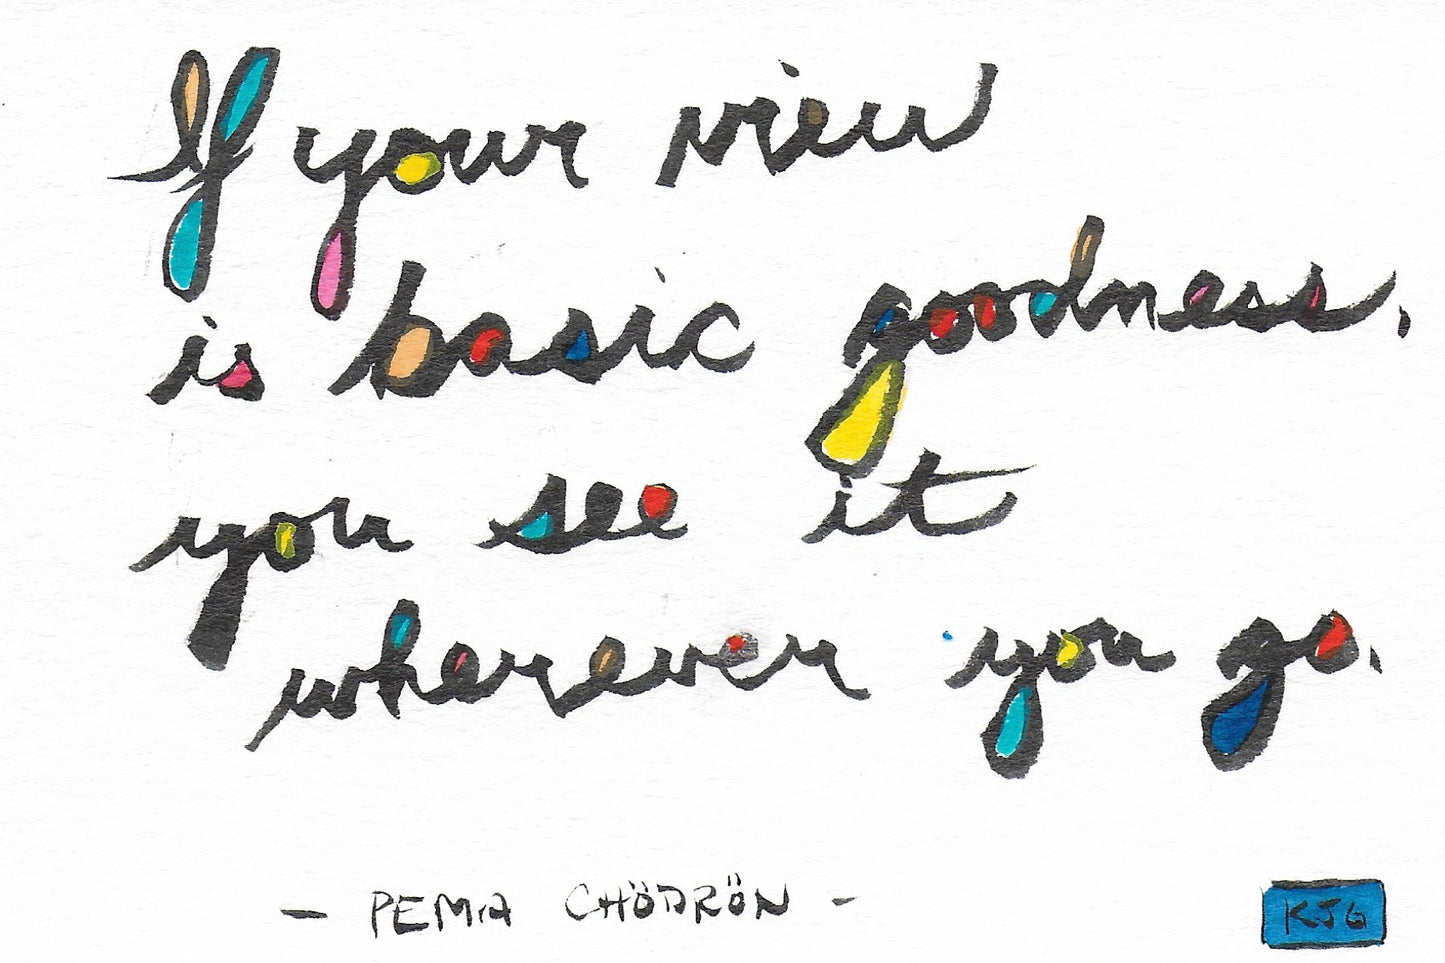 If your view
is basic goodness,
you see it
wherever you go.
- PEMA CHÖDRÖN -
KJG